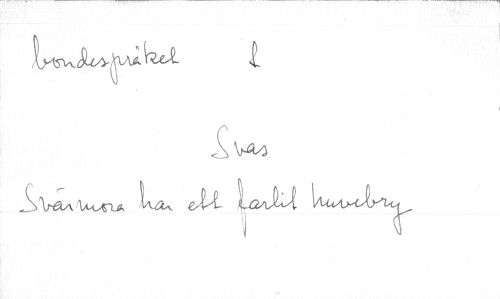 bondespråket S
Svas
Svärmora har ett farlit huvebry